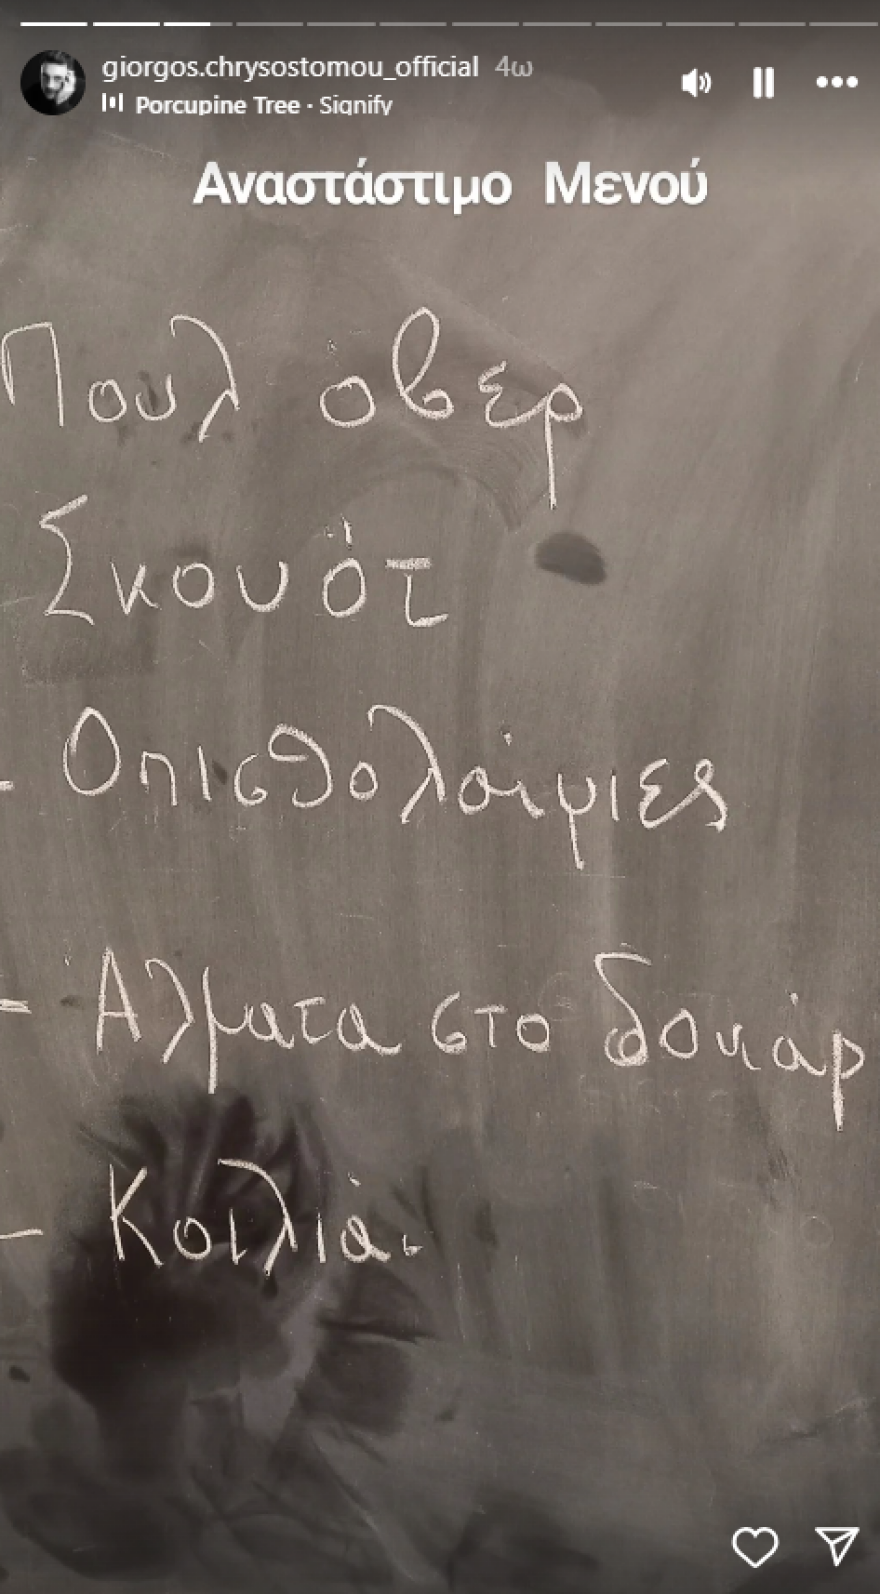 giorgos.chrysostomou_official 4ω
Porcupine Tree · Signify
Αναστάστιμο Μενού
Πουλ όβερ
Σκουότ
- Οπισθολαίμιες
- Άλματα στο δοκάρ
- Κοιλιά.